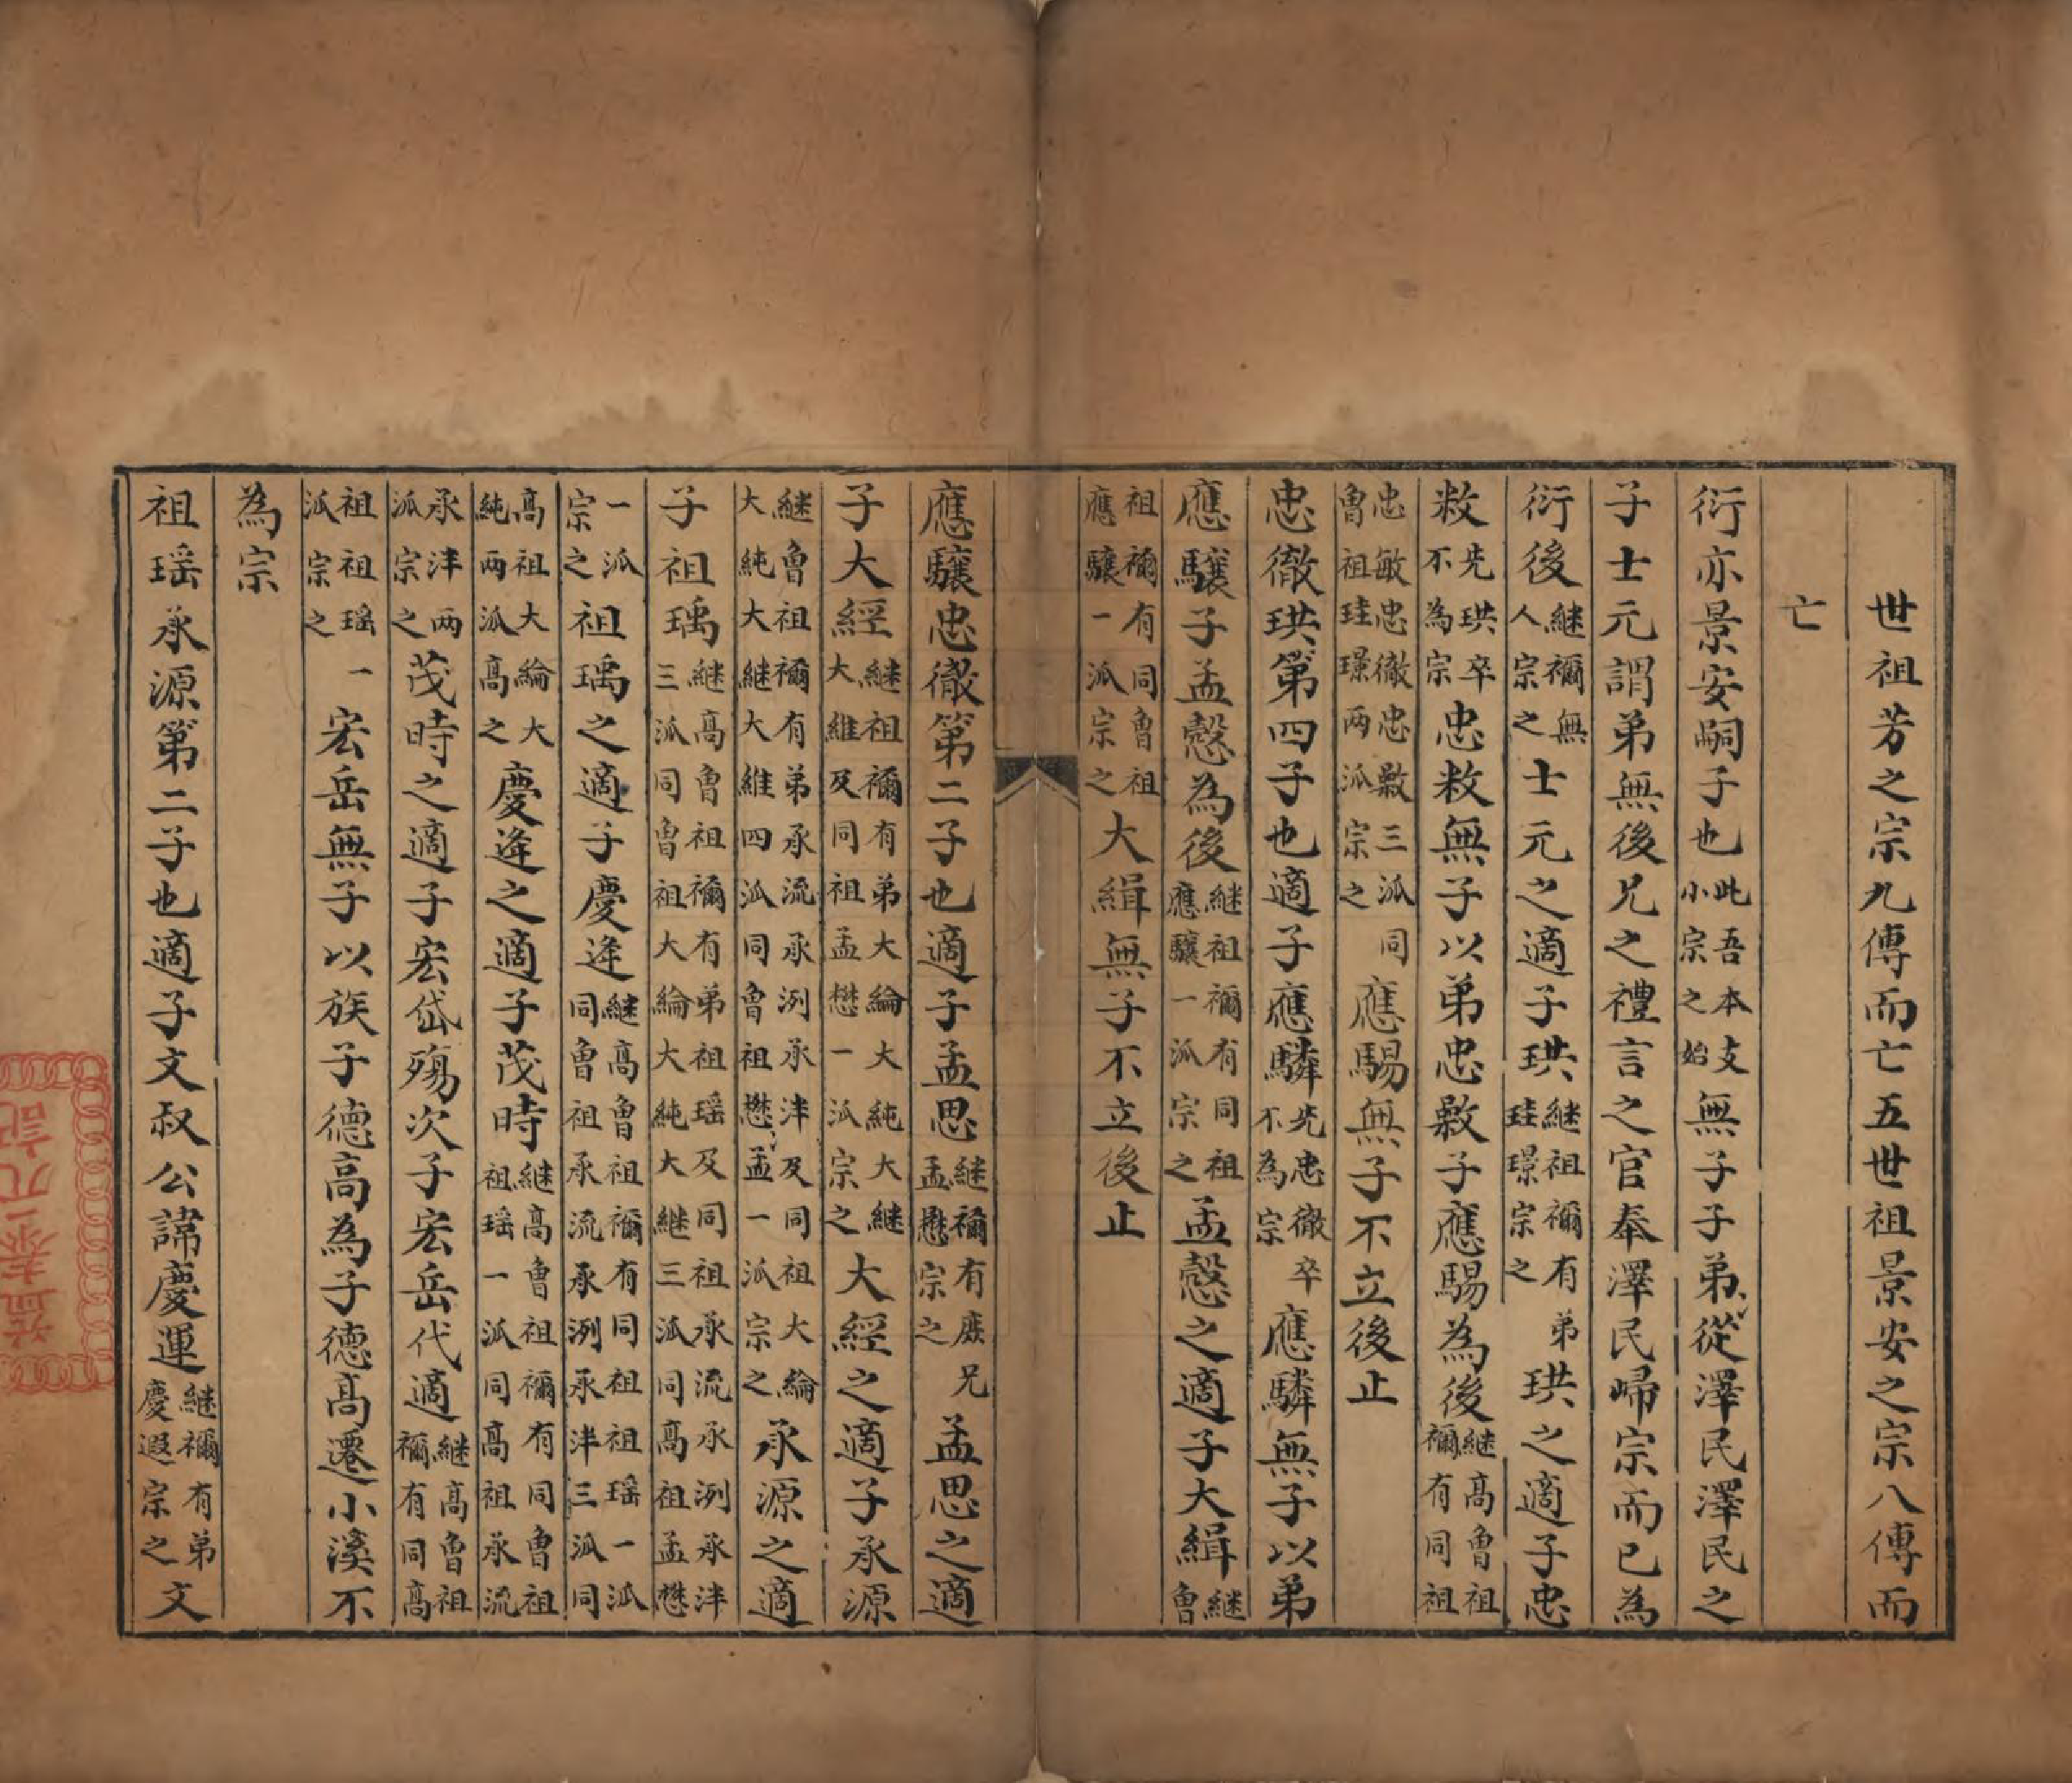 世祖芳之宗九傳而亡五世祖景安之宗八傳而
亡
衍亦景安嗣子也此吾本支小宗之始無子子弟從澤民澤民之
子士元謂弟無後兄之禮言之官奉澤民歸宗而已為
衍後継禰無人宗之士元之適子珙継祖禰有弟珪璟宗之珙之適子忠
敕先珙卒不為宗忠敕無子以弟忠敭子應騸為後継高魯祖禰有同祖
忠敏忠徹忠敭三派同魯祖珪璟兩派宗之應騸無子不立後止
忠徹珙第四子也適子應驎先忠徹卒不為宗應驎無子以弟
應驤子孟愨為後継祖禰有同祖應驤一派宗之孟愨之適子大緝継魯
祖禰有同魯祖應驤一派宗之大緝無子不立後止
應驤忠徹第二子也適子孟思継禰有庶兄孟懋宗之孟思之適
子大經継祖禰有弟大綸大純大継大維及同祖孟懋一派宗之大經之適子承源
継魯祖禰有弟承流承洌承泮及同祖大綸大純大継大維四派同魯祖懋孟一派宗之承源之適
子祖瑀継高魯祖禰有弟祖瑶及同祖承流承洌承泮三派同魯祖大綸大純大継三派同高祖孟懋
一派宗之祖瑀之適子慶逄継高魯祖禰有同祖祖瑶一派同魯祖承流承洌承泮三派同
高祖大綸大純兩派高之慶逄之適子茂時継高魯祖禰有同魯祖祖瑶一派同高祖承流
承泮兩派宗之茂時之適子宏岱殤次子宏岳代適継高魯祖禰有同高
祖祖瑶一派宗之宏岳無子以族子德高為子德高遷小溪不
為宗
祖瑶承源第二子也適子文叔公諱慶運継禰有弟慶遐宗之文